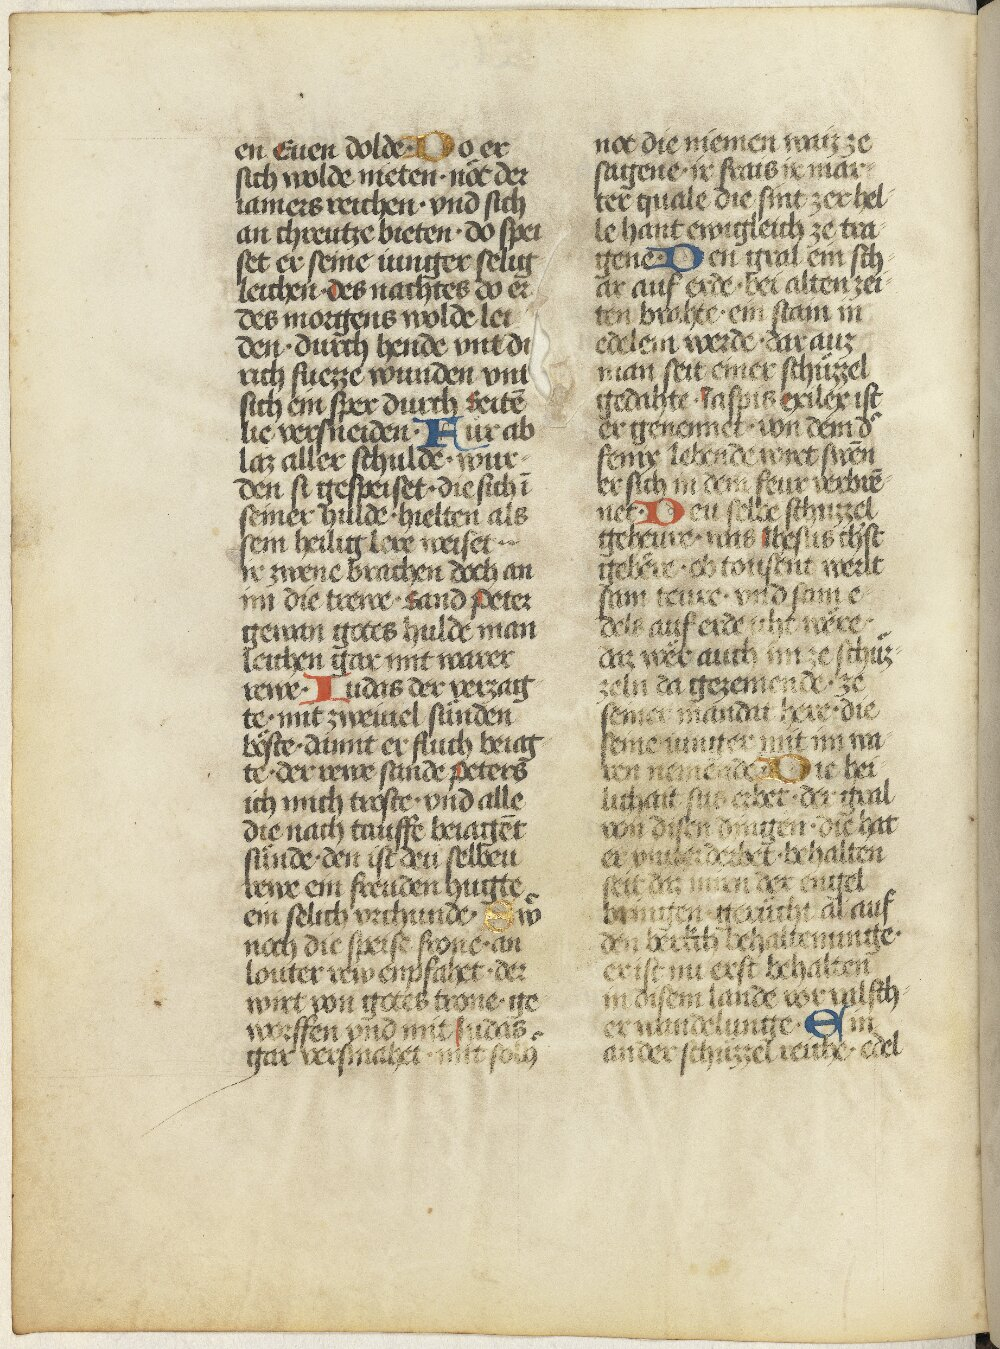 en Euen dolde· Do er
sich wolde nieten· nöt der
iamers reichen· vnd sich
an chreutze bieten· do spei
set er seine iunger selig
leichen· des nachtes do er
des morgens wolde lei
den· durch hende vnt du
rich fuezze wunden vnt
sich ein sper durch seitē
lie versneiden· Für ab
laz aller schulde· wur-
den si gespeiset· die sich ī
seiner hulde· hielten als
sein heilig lere weiset··
ir zwene brachen doch an
im die trewe· Sand Peter
gewan gotes hulde man
leichen gar mit warer
rewe· Iudas der verzag
te· mit zweiuel sünden
böste· damit er fluch beiag
te· der rewe sande peters
ich mich troste· vnd alle
die nach tauffe beiagēt
sünde· den ist deu selben
rewe ein freuden hugte
ein selich vrchunde· Sw̄
noch die speise frone· an
louter rew empfahet· der
wirt von gotes trone· ge
worffen vnd mit Iudas
gar versmahet· mit solh̄
not die niemen waizze
sagene· ir frais ir mar-
ter quale die sint zer hel-
le hant ewigleich ze tra-
gene· Den gral ein sch-
ar auf erde· bei alten zei-
ten brahte· ein stain in
edelem werde· dar auz
man seit einer schüzzel
gedahte· Iaspis exilex ist
er genennet· von dem d̄
fenix lebende wirt swēn
er sich in dem feur verbrē-
net· Deu selbe schuzzel
geheure· was Ihesus christ
gebere· ob tousent werlt
sam teure· vnd sam e-
dels auf erde iht wëre·
daz wër auch im ze schüz-
zeln da gezemende· ze
seiner mandat here· die
seine iunger mit im wa-
ren nemende· Die hei-
lichait sus erbet· der gral
von disen dingen· die hat
er vnuerderbet· behalten
seit daz man der engel
bringen· gerücht al auf
den berkh behaltenunge·
er ist nu erst behalten
in disem lande vor valsch-
er wandelunge· Ein
ander schüzzel reiche· edel